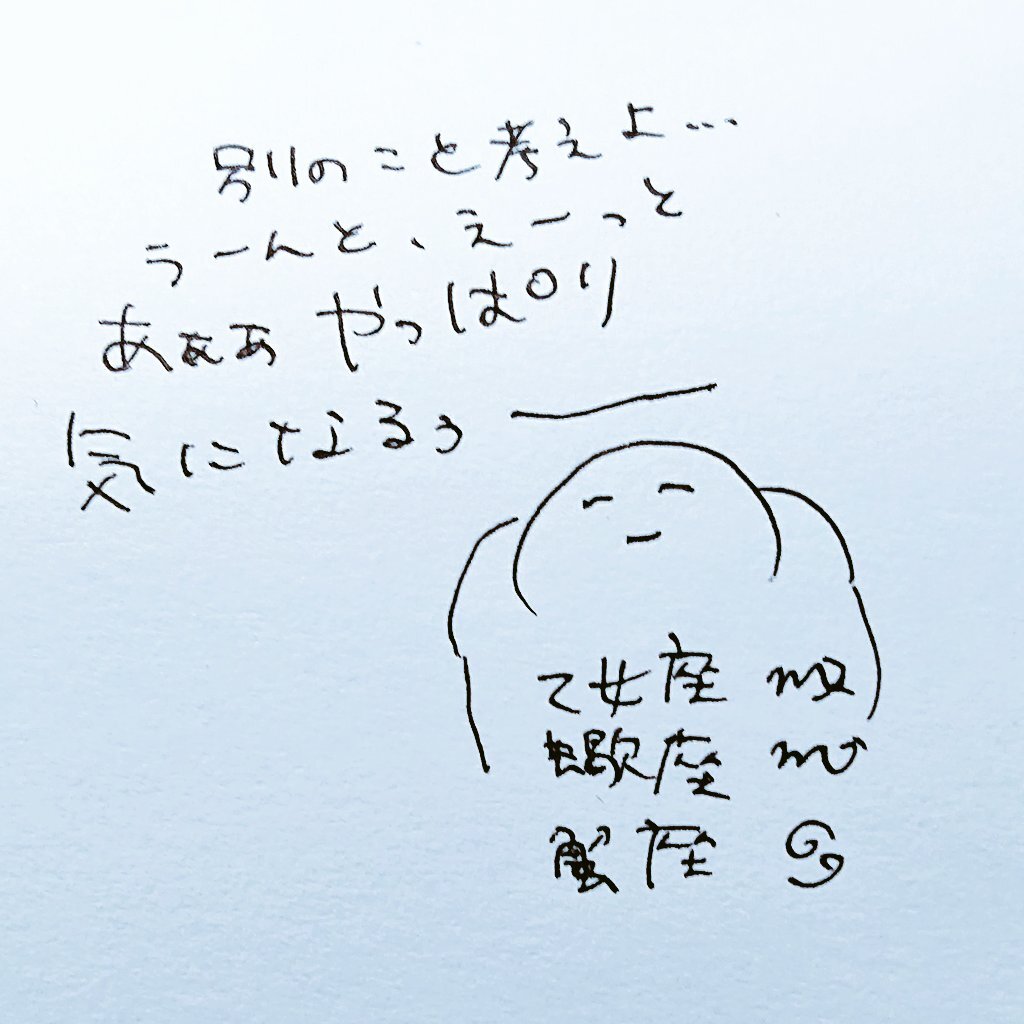 別のこと考えよ...
うーんと、えーっと
あぁぁ やっぱり
気になるぅ
乙女座 ♍
蠍座 ♏
蟹座 ♋